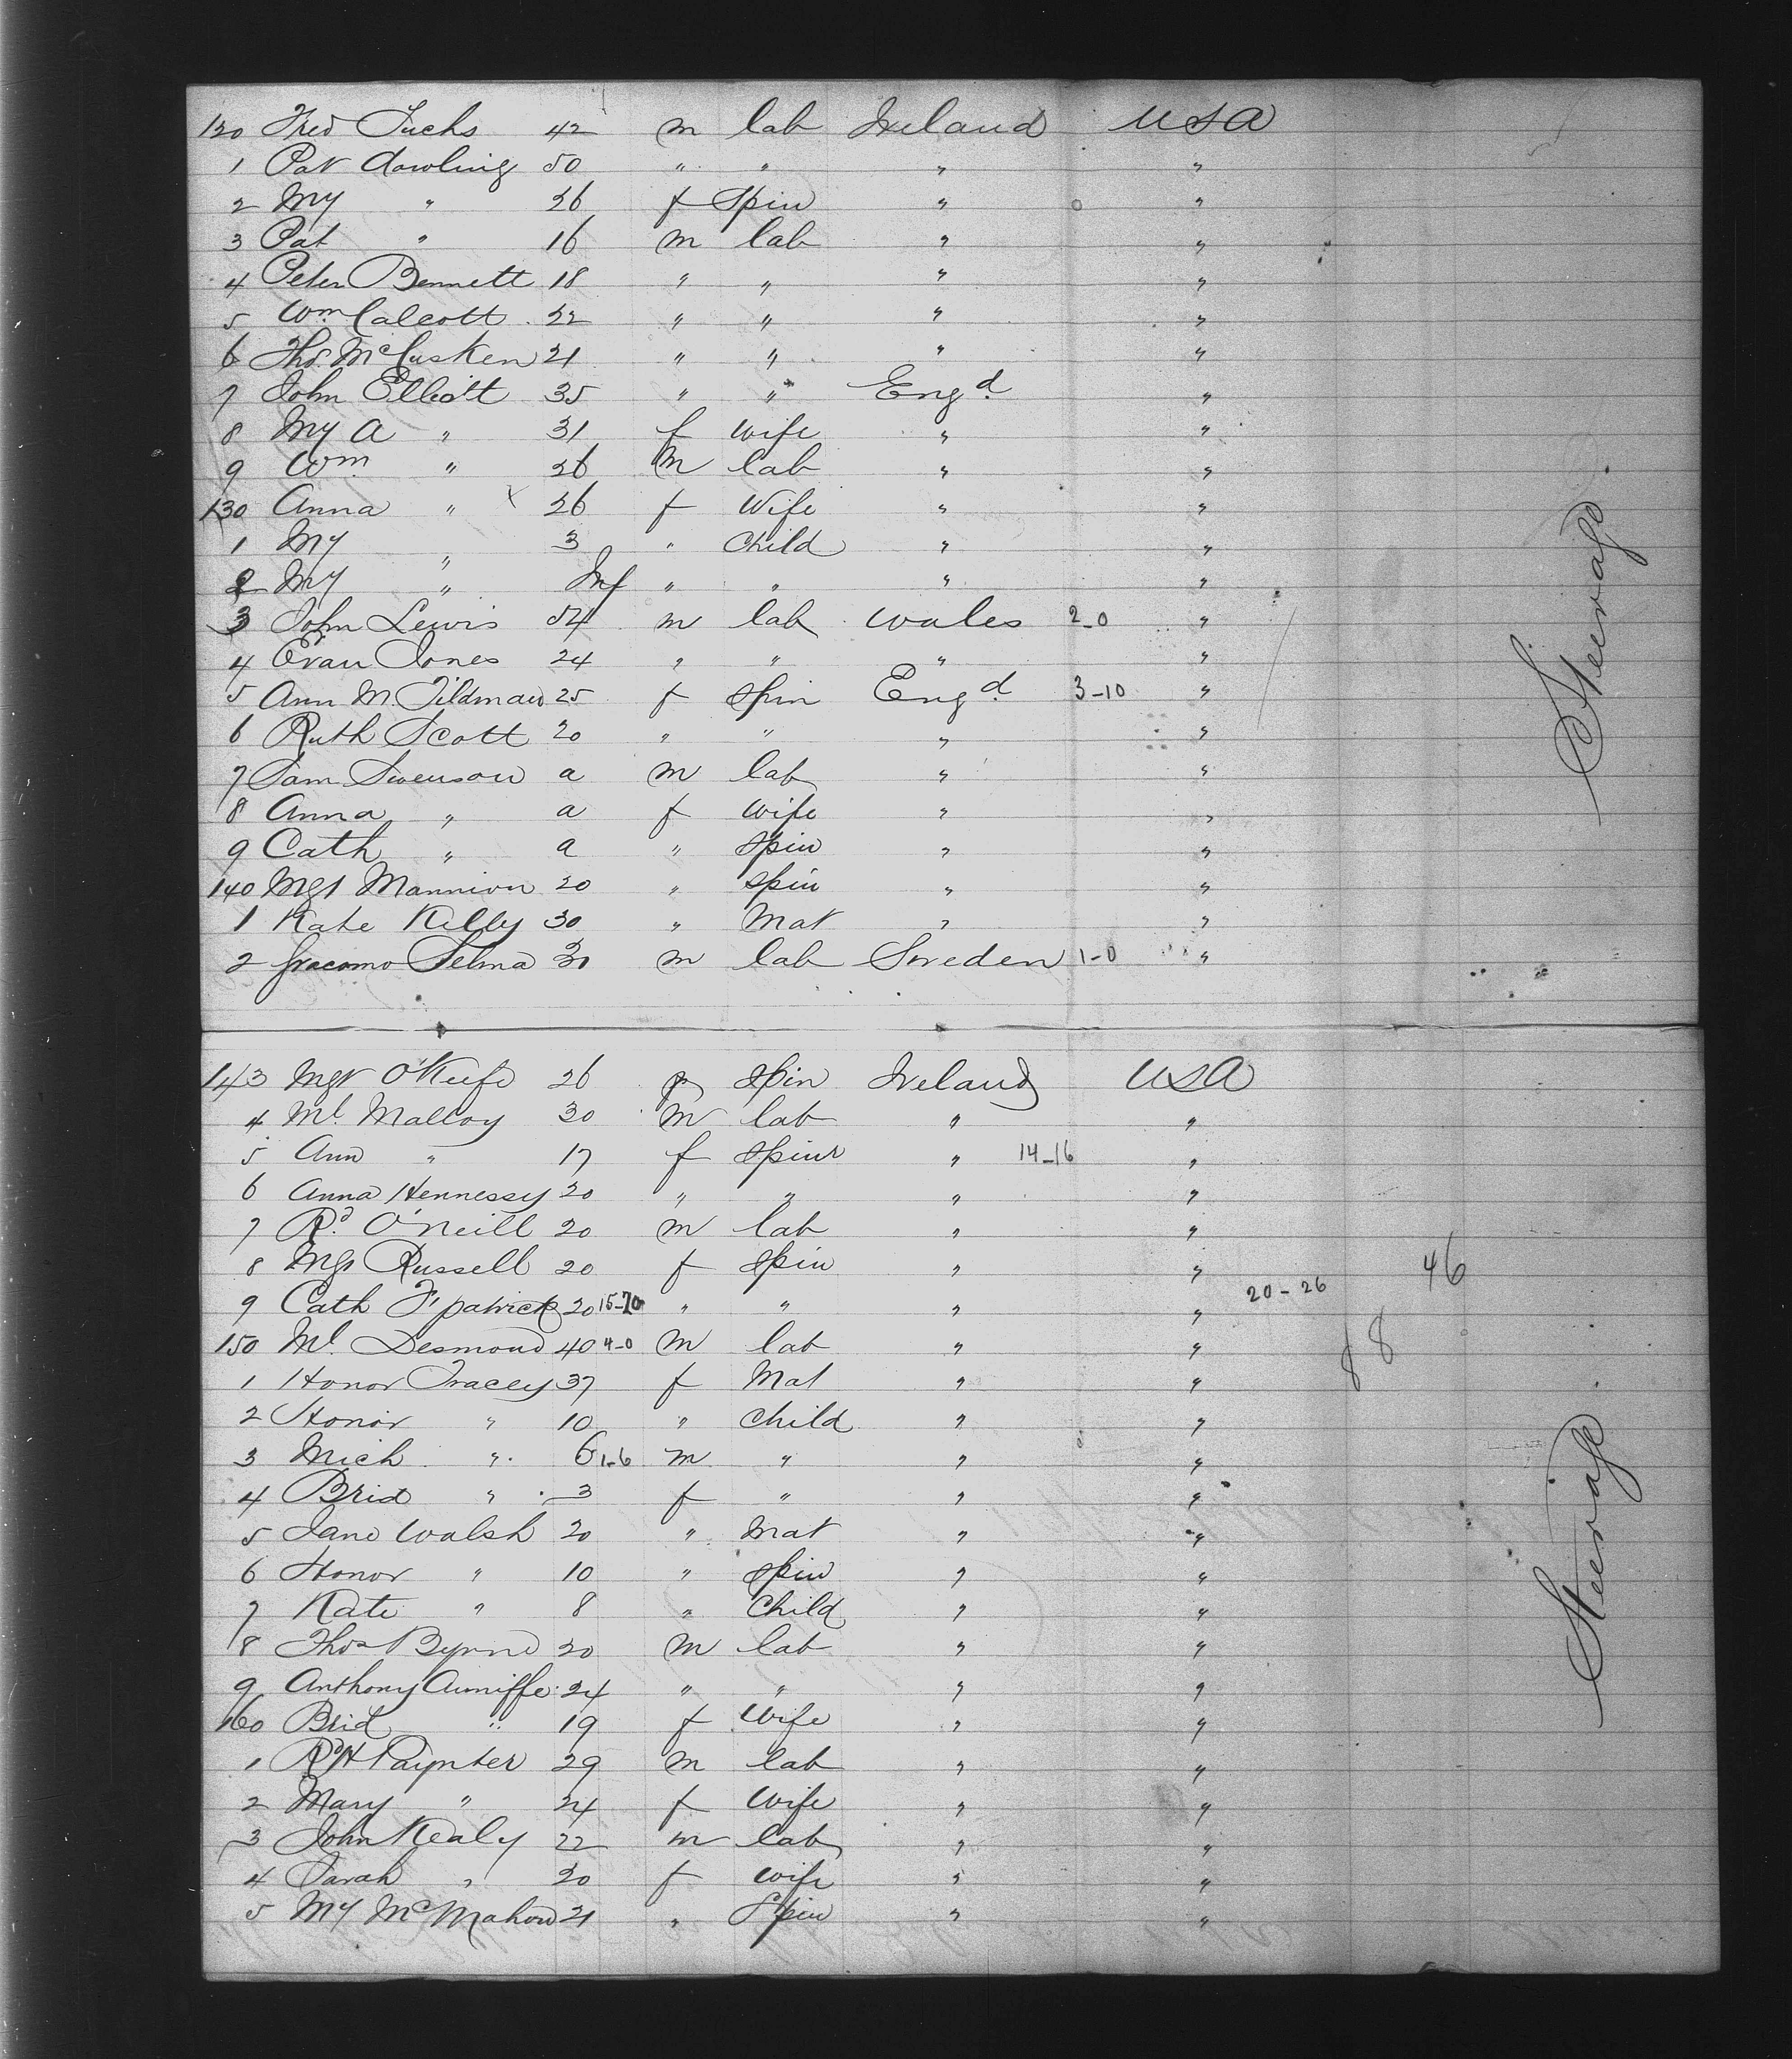 120 Fred Fuchs 42 m lab Ireland USA
1 Pat Dowling 50 " " " "
2 My " 26 f Spin " "
3 Pat " 16 m lab " "
4 Peter Bennett 18 " " " "
5 Wm Calcott 22 " " " "
6 Thos McCusken 21 " " " "
7 John Elliott 35 " " Engd "
8 My A " 31 f Wife " "
9 Wm " 26 m lab " "
130 Anna " 26 f Wife " "
1 My " 3 " Child " "
2 My " Inf " " " "
3 John Lewis 54 m lab Wales 2-0 "
4 Evan Jones 24 " " " "
5 Ann M. Tildman 25 f Spin Engd 3-10 "
6 Ruth Scott 20 " " " "
7 Sam Swenson a m lab " "
8 Anna " a f Wife " "
9 Cath " a " Spin " "
140 Mgt Mannion 20 " Spin " "
1 Kate Kelly 30 " Mat " "
2 Giacomo Selma 30 m lab Sweden 1-0 "
Steerage.
143 Mgt O'Keefe 26 f Spin Ireland USA
4 Ml. Malloy 30 m lab " "
5 Ann " 17 f Spinr " 14-16 "
6 Anna Hennessy 20 " " " "
7 Rd. O'Neill 20 m lab " "
8 Mgt Russell 20 f Spin " " 46
9 Cath F'patrick 20 15-70 " " " " 20-26
150 Ml. Desmond 40 4-0 m lab " " 8
1 Honor Tracey 37 f Mat " "
2 Honor " 10 " Child " "
3 Mich " 6 1-6 m " " "
4 Brid " 3 f " " "
5 Jane Walsh 20 " Mat " "
6 Honor " 10 " Spin " "
7 Kate " 8 " Child " "
8 Thos Byrne 20 m lab " "
9 Anthony 24 " " " "
160 Brid " 19 f Wife " "
1 Rd H Paynter 29 m lab " "
2 Mary " 24 f Wife " "
3 John Kealy 22 m lab " "
4 Sarah " 20 f Wife " "
5 My McMahon 21 " Spin " "
Steerage.